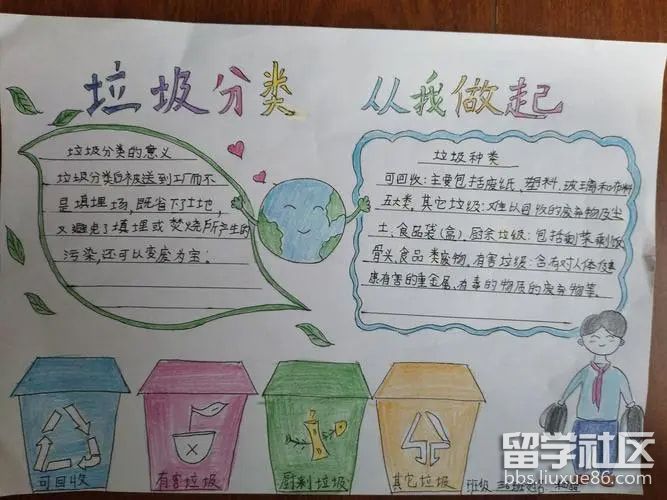 垃圾分类 从我做起
垃圾分类的意义
垃圾分类后被送到工厂而不
是填埋场,既省下土地,
又避免了填埋或焚烧所产生的
污染,还可以变废为宝。
垃圾种类
可回收:主要包括废纸、塑料、玻璃和布料
五大类。其它垃圾:难以回收的废弃物及尘
土、食品袋(盒)。厨余垃圾:包括剩菜剩饭
骨头、食品类废物。有害垃圾:含有对人体健
康有害的重金属、有毒的物质的废弃物等。
可回收
有害垃圾
厨剩垃圾
其它垃圾
班级
留学社区
bbs.liuxue86.com